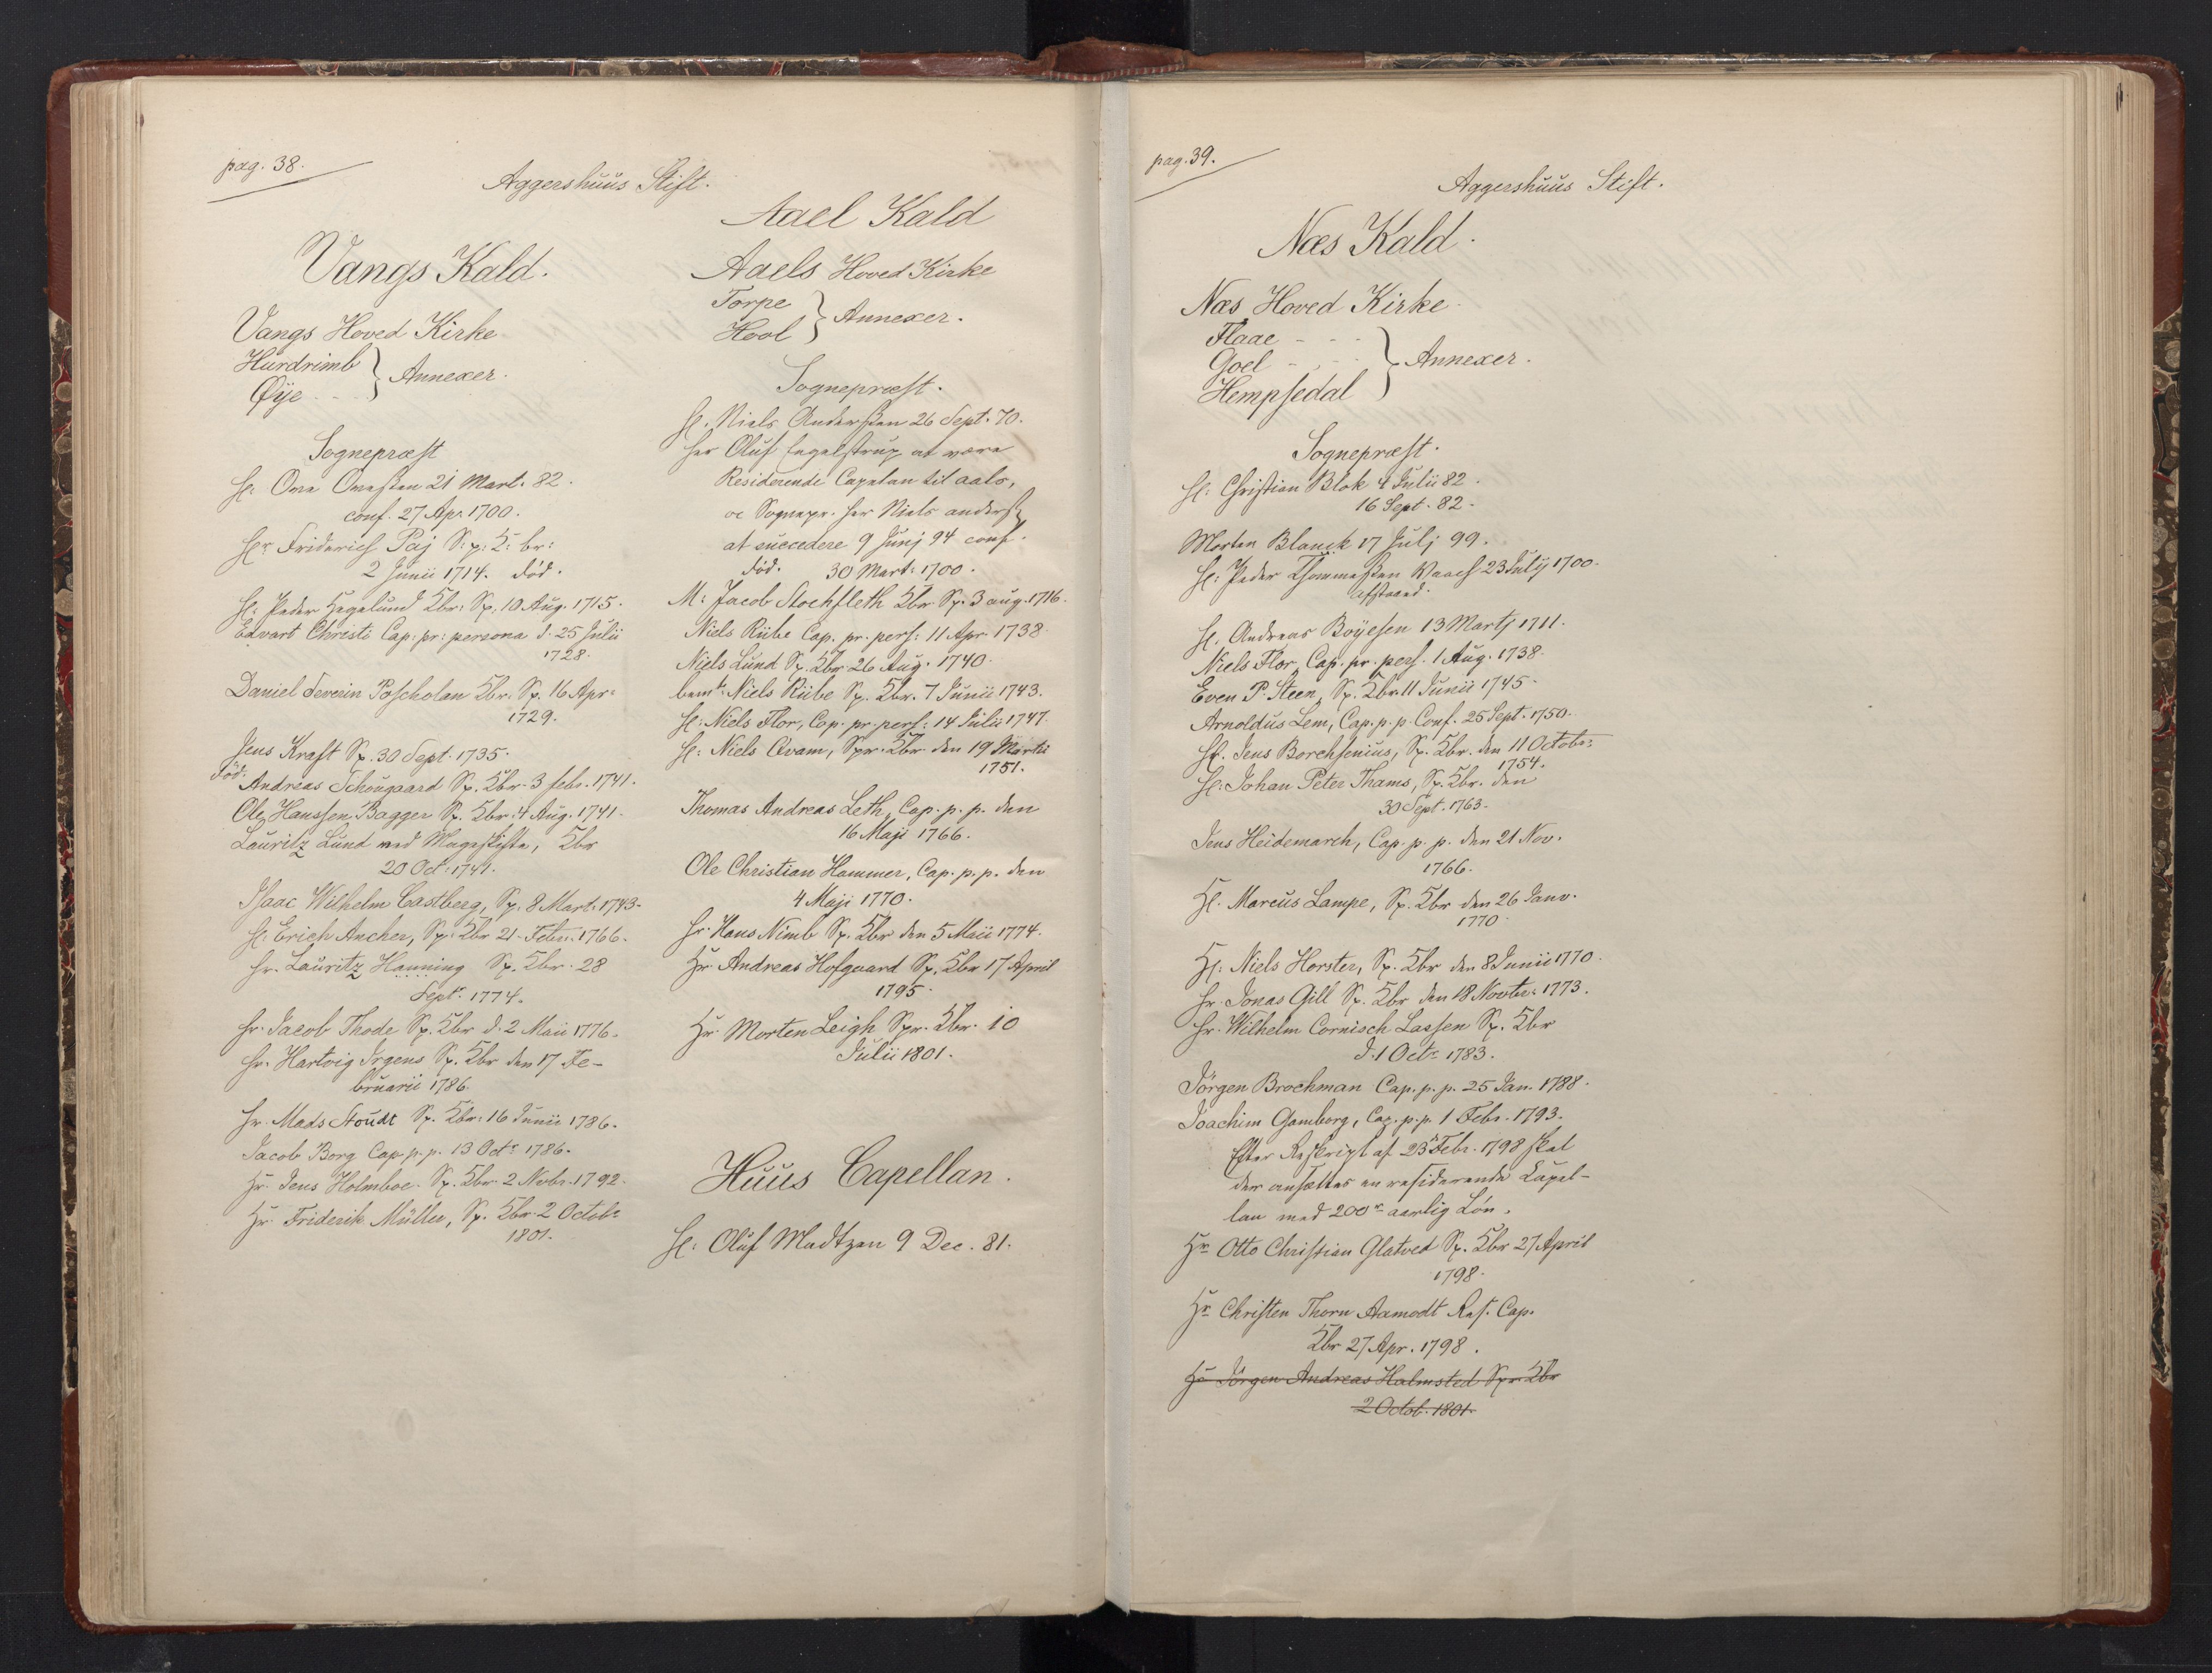 pag. 38.
Aggershuus Stift.
Vangs Kald.
Vangs Hoved Kirke
Hurdrimb
Øye - - -
} Annexer.
Sognepræst
H: Ove Oveßen 21 Mart. 82.
conf. 27 Apr. 1700.
Hr Friderich Paj S: p: K: br:
2 Junii 1714. död.
H: Peder Hegelund Kbr: Sp. 10 Aug. 1715.
Edvart Christi Cap: pr: persona d. 25 Julii
1728.
Daniel Severin Poscholan Kbr. Sp. 16 Apr:
1729.
Jens Kraft Sp. 30 Sept. 1735.
död.
Andreas Schougaard Sp. Kbr. 3 febr. 1741.
Ole Hanssen Bagger Sp. Kbr. 4 Aug. 1741.
Lauritz Lund ved Mageskifte, Kbr
20 Oct: 1741.
Isaac Wilhelm Castberg, Sp. 8 Mart. 1743.
H: Erich Ancher, Sp: Kbr 21 Febr. 1766.
Hr. Lauritz Hanning Sp. Kbr. 28
Septr. 1774.
Hr. Jacob Thode Sp. Kbr d. 2 Maii 1776.
Hr. Hartvig Irgens Sp. Kbr den 17 Fe-
bruarii 1786.
Hr. Mads Stoudt Sp. Kbr: 16 Junii 1786.
Jacob Borg Cap. p. p. 13 Octr 1786.
Hr. Jens Holmboe. Sp. Kbr. 2 Novbr. 1792.
Hr. Friderik Müller, Sp. Kbr. 2 Octobr
1801.
Aael Kald
Aaels Hoved Kirke
Torpe
Hool
} Annexer.
Sognepræst.
H. Niels Anderßen 26 Sept. 70.
Her Oluf Engelstrup at være
Residerende Capelan til aals,
oc Sognepr. Her Niels anderß
at succedere 9 Junj 94 conf.
död. 30 Mart: 1700.
M: Jacob Stochfleth Kbr Sp. 3 aug. 1716.
Niels Riibe Cap. pr. pers: 11 Apr 1738
Niels Lund Sp. Kbr 26 Aug. 1740.
bemte Niels Riibe Sp. Kbr. 7 Junii 1743.
H: Niels Flor, Cap. pr. pers: 14 Julii 1747.
H: Niels Qvam, Spr. Kbr den 19 Martii
1751.
Thomas Andreas Leth, Cap. p. p. den
16 Maji 1766.
Ole Christian Hammer, Cap. p. p. den
4 Maji 1770.
Hr. Hans Nimb Sp. Kbr den 5 Maii 1774.
Hr Andreas Hofgaard Sp. Kbr 17 April
1795.
Hr Morten Leigh Spr. Kbr. 10
Julii 1801.
Huus Capellan.
H: Oluf Madtzen 9 Dec. 81.
pag. 39.
Aggershuus Stift.
Næs Kald.
Næs Hoved Kirke.
Flaae - - -
Goel - - -
Hempsedal
} Annexer.
Sognepræst.
H: Christian Blok 4 Julii 82.
16 Sept. 82.
Morten Blanck 17 Julj 99.
H: Peder Thommeßen Waach 23 Julij 1700.
afstaaed.
H. Andreas Boyesen 13 Martj 1711.
Niels Flor, Cap. pr. pers. 1 Aug. 1738.
Even P. Steen, Sp. Kbr. 11 Junii 1745.
Arnoldus Lem, Cap. p. p. Conf. 25 Sept. 1750.
H. Jens Borchsenius, Sp. Kbr. den 11 Octobr:
1754.
H: Johan Peter Thams, Sp. Kbr. den
30 Sept. 1763.
Jens Heidemarch, Cap. p. p. den 21 Nov.
1766.
H. Marcus Lampe, Sp. Kbr den 26 Janv.
1770
H: Niels Horster, Sp. Kbr den 8 Junii 1770.
Hr. Jonas Gill Sp. Kbr den 18 Novbr: 1773.
Hr. Wilhelm Cornisch Lassen Sp. Kbr
d. 1 Octr 1783.
Jörgen Brochman Cap. p. p. 25 Jan. 1788.
Joachim Gamborg, Cap. p. p. 1 Febr. 1793.
Efter Reskript af 23 Febr. 1798 skal
der ansættes en residerende Capel-
lan med 200 rd aarlig Løn.
Hr Otto Christian Glatved Sp. Kbr 27 April
1798.
Hr Christen Thorn Aamodt Res. Cap.
Kbr 27 Apr. 1798.
Hr Jörgen Andreas Halmsted Spr. Kbr
2 Octob. 1801.